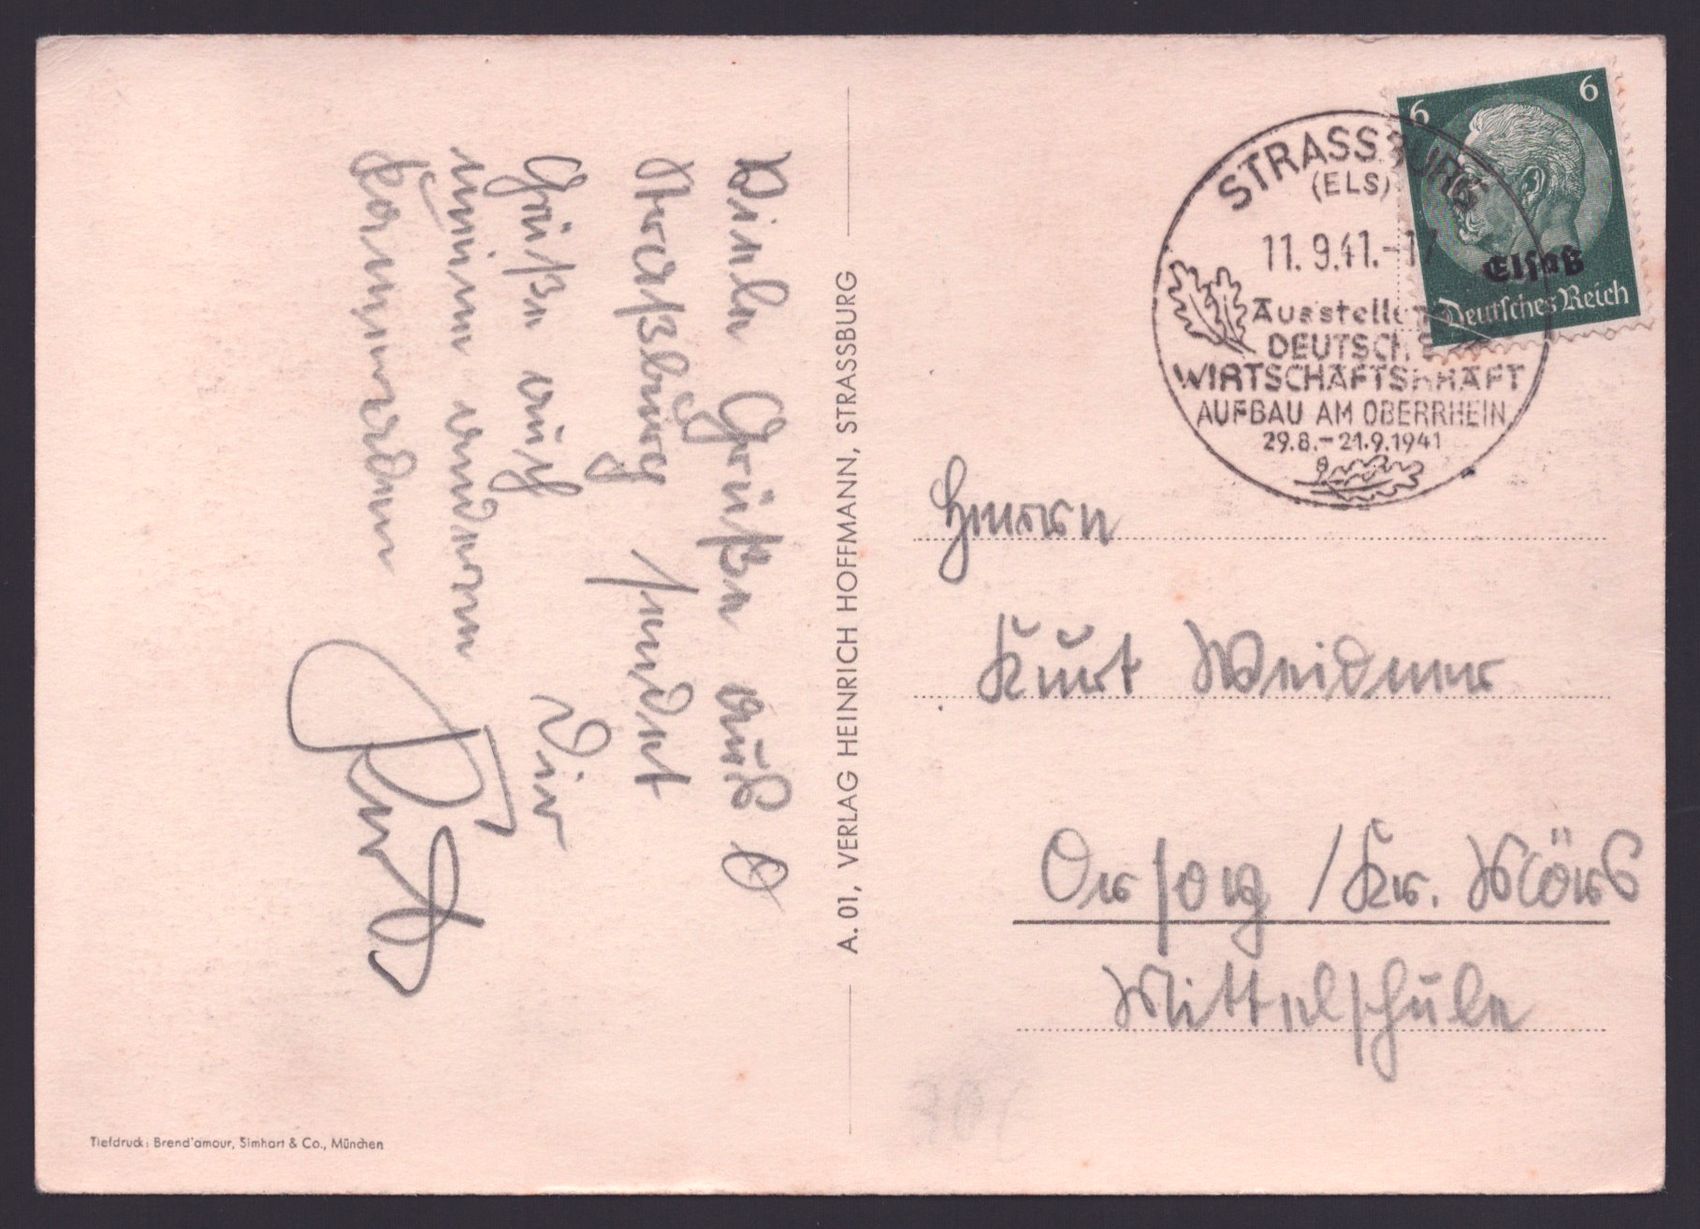 Viele Grüße aus
Straßburg sendet Dir
Grüße auch
meinen anderen
Kameraden
A. 01, VERLAG HEINRICH HOFFMANN, STRASSBURG
Tiefdruck: Brend'amour, Simhart & Co., München
6 6
Elsaß
Deutsches Reich
STRASSBURG
(ELS)
11.9.41.-17
Ausstellung
DEUTSCHE
WIRTSCHAFTSKRAFT
AUFBAU AM OBERRHEIN
29.8.-21.9.1941
Herrn
Kurt Weidner
Orsoy / Kr. Mörs
Mittelschule